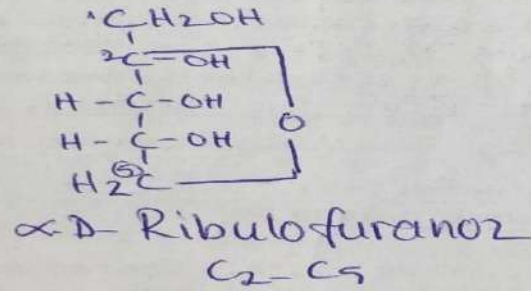 ¹CH2OH
²C-OH
H-C-OH
O
H-C-OH
H2⑤C
α D- Ribulofuranoz
C2-C5